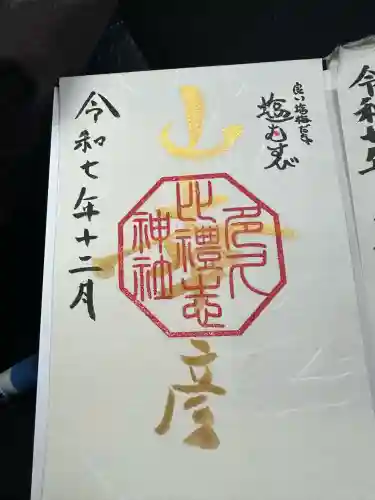 良い塩梅だ
塩むすび
山
彦
多久
比禮志
神社
令和七年十二月
令和七年